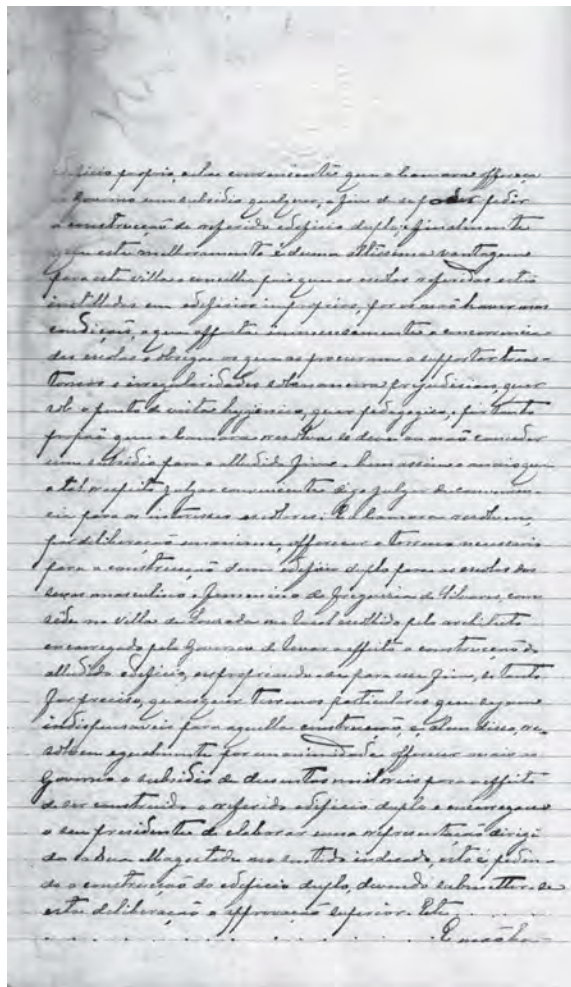 edificio proprio, e era conveniente que a Camara offereça
ao Governo um subsidio qualquer, a fim de se poder pedir
a construcção do referido edificio duplo; finalmente
que este melhoramento é duma altissima vantagem
para esta villa e concelho, pois que as escolas referidas estão
installadas em edificios improprios, por os não haver nas
condições, o que affecta immensamente a concorrencia
das escolas e obriga os que as procuram a supportar trans-
tornos e irregularidades sobremaneira prejudiciaes, quer
sob o ponto de vista hygienico, quer pedagogico, e portanto
propõe que a Camara resolva se deve ou não conceder
um subsidio para o alludido fim, bem assim o mais que
a tal respeito julgar conveniente digo julgar de convenien-
cia para os interesses escolares. E a Camara resolveu,
por deliberação unanime, offerecer o terreno necessario
para a construcção dum edificio duplo para as escolas dos
sexos masculino e femenino da freguezia de Silvares, com
séde na villa de Louzada no local escolhido pelo architecto
encarregado pelo Governo de levar a effeito a construcção do
alludido edificio, expropriando-se para esse fim, se tanto
for preciso, quaesquer terrenos particulares que sejam
indispensaveis para aquella construcção, e, alem disso, re-
solvem egualmente por unanimidade offerecer mais ao
Governo o subsidio de duzentos mil reis para o effeito
de ser construido o referido edificio duplo e encarregar
o seu presidente de elaborar uma representação dirigi-
da a Sua Magestade no sentido indicado, isto é, pedin-
do a construcção do edificio duplo, devendo submetter-se
esta deliberação a approvação superior.
E não ha